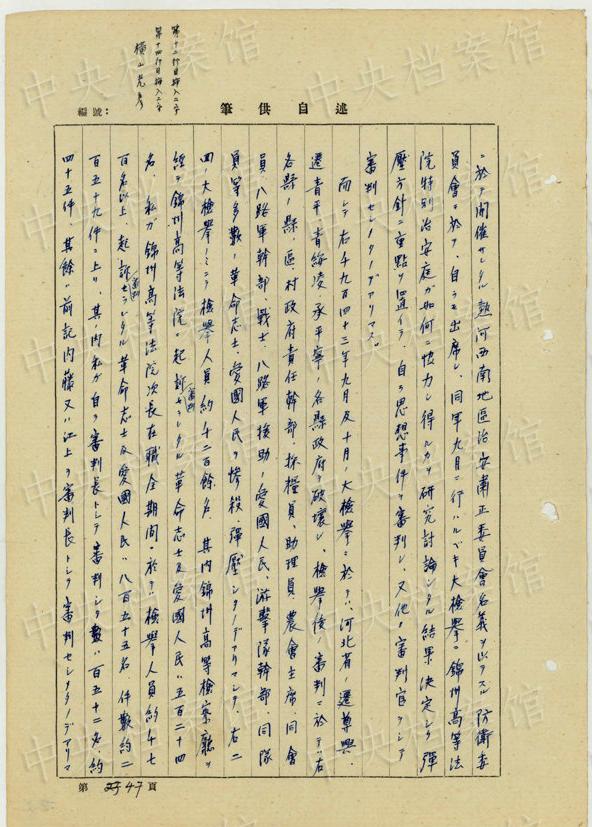 第十二行目挿入二字
第十四行目挿入二字
横山光彦
編號：
筆供自述
ニ於テ開催サレタル熱河西南地區治安肅正委員會名義ヲ以テスル防衛委
員會ニ於テ、自ラモ出席シ、同年九月ニ行ハルベキ大檢擧ニ錦州高等法
院特別治安庭ガ如何ニ協力シ得ルカヲ研究討論シタル結果決定シタ彈
壓方針ニ重點ヲ置イテ、自ラ思想事件ヲ審判シ、又他ノ審判官ヲシテ
審判セシメタノデアリマス。
而シテ右千九百四十三年九月及十月ノ大檢擧ニ於テハ、河北省ノ遷遵興、
遷青平、青綏凌、承平寧ノ各縣政府ヲ破壞シ、檢擧後ノ審判ニ於テ右
各縣ノ縣、區、村政府責任幹部、採糧員、助理員、農會主席、同會
員、八路軍幹部、戰士、八路軍援助ノ愛國人民、游擊隊幹部、同隊
員等多數ノ革命志士、愛國人民ヲ慘殺彈壓シタノデアリマシテ、右二
回ノ大檢擧ノミニテ檢擧人員約千二百餘名、其内錦州高等檢察廳ヲ
經テ錦州高等法院ニ起訴審判セラレタル革命志士及愛國人民ハ五百二十四
名、私ガ錦州高等法院次長在職全期間ニ於テハ檢擧人員約千七
百名以上、起訴審判セラレタル革命志士及愛國人民ハ八百五十五名、件數約二
百五十九件ニ上リ、其ノ内私ガ自ラ審判長トシテ審判シタ數ハ百五十二名、約
四十五件、其餘ハ前記内藤又ハ江上ヲ審判長トシテ審判セシメタノデアリマ
第 47 頁
中央档案馆